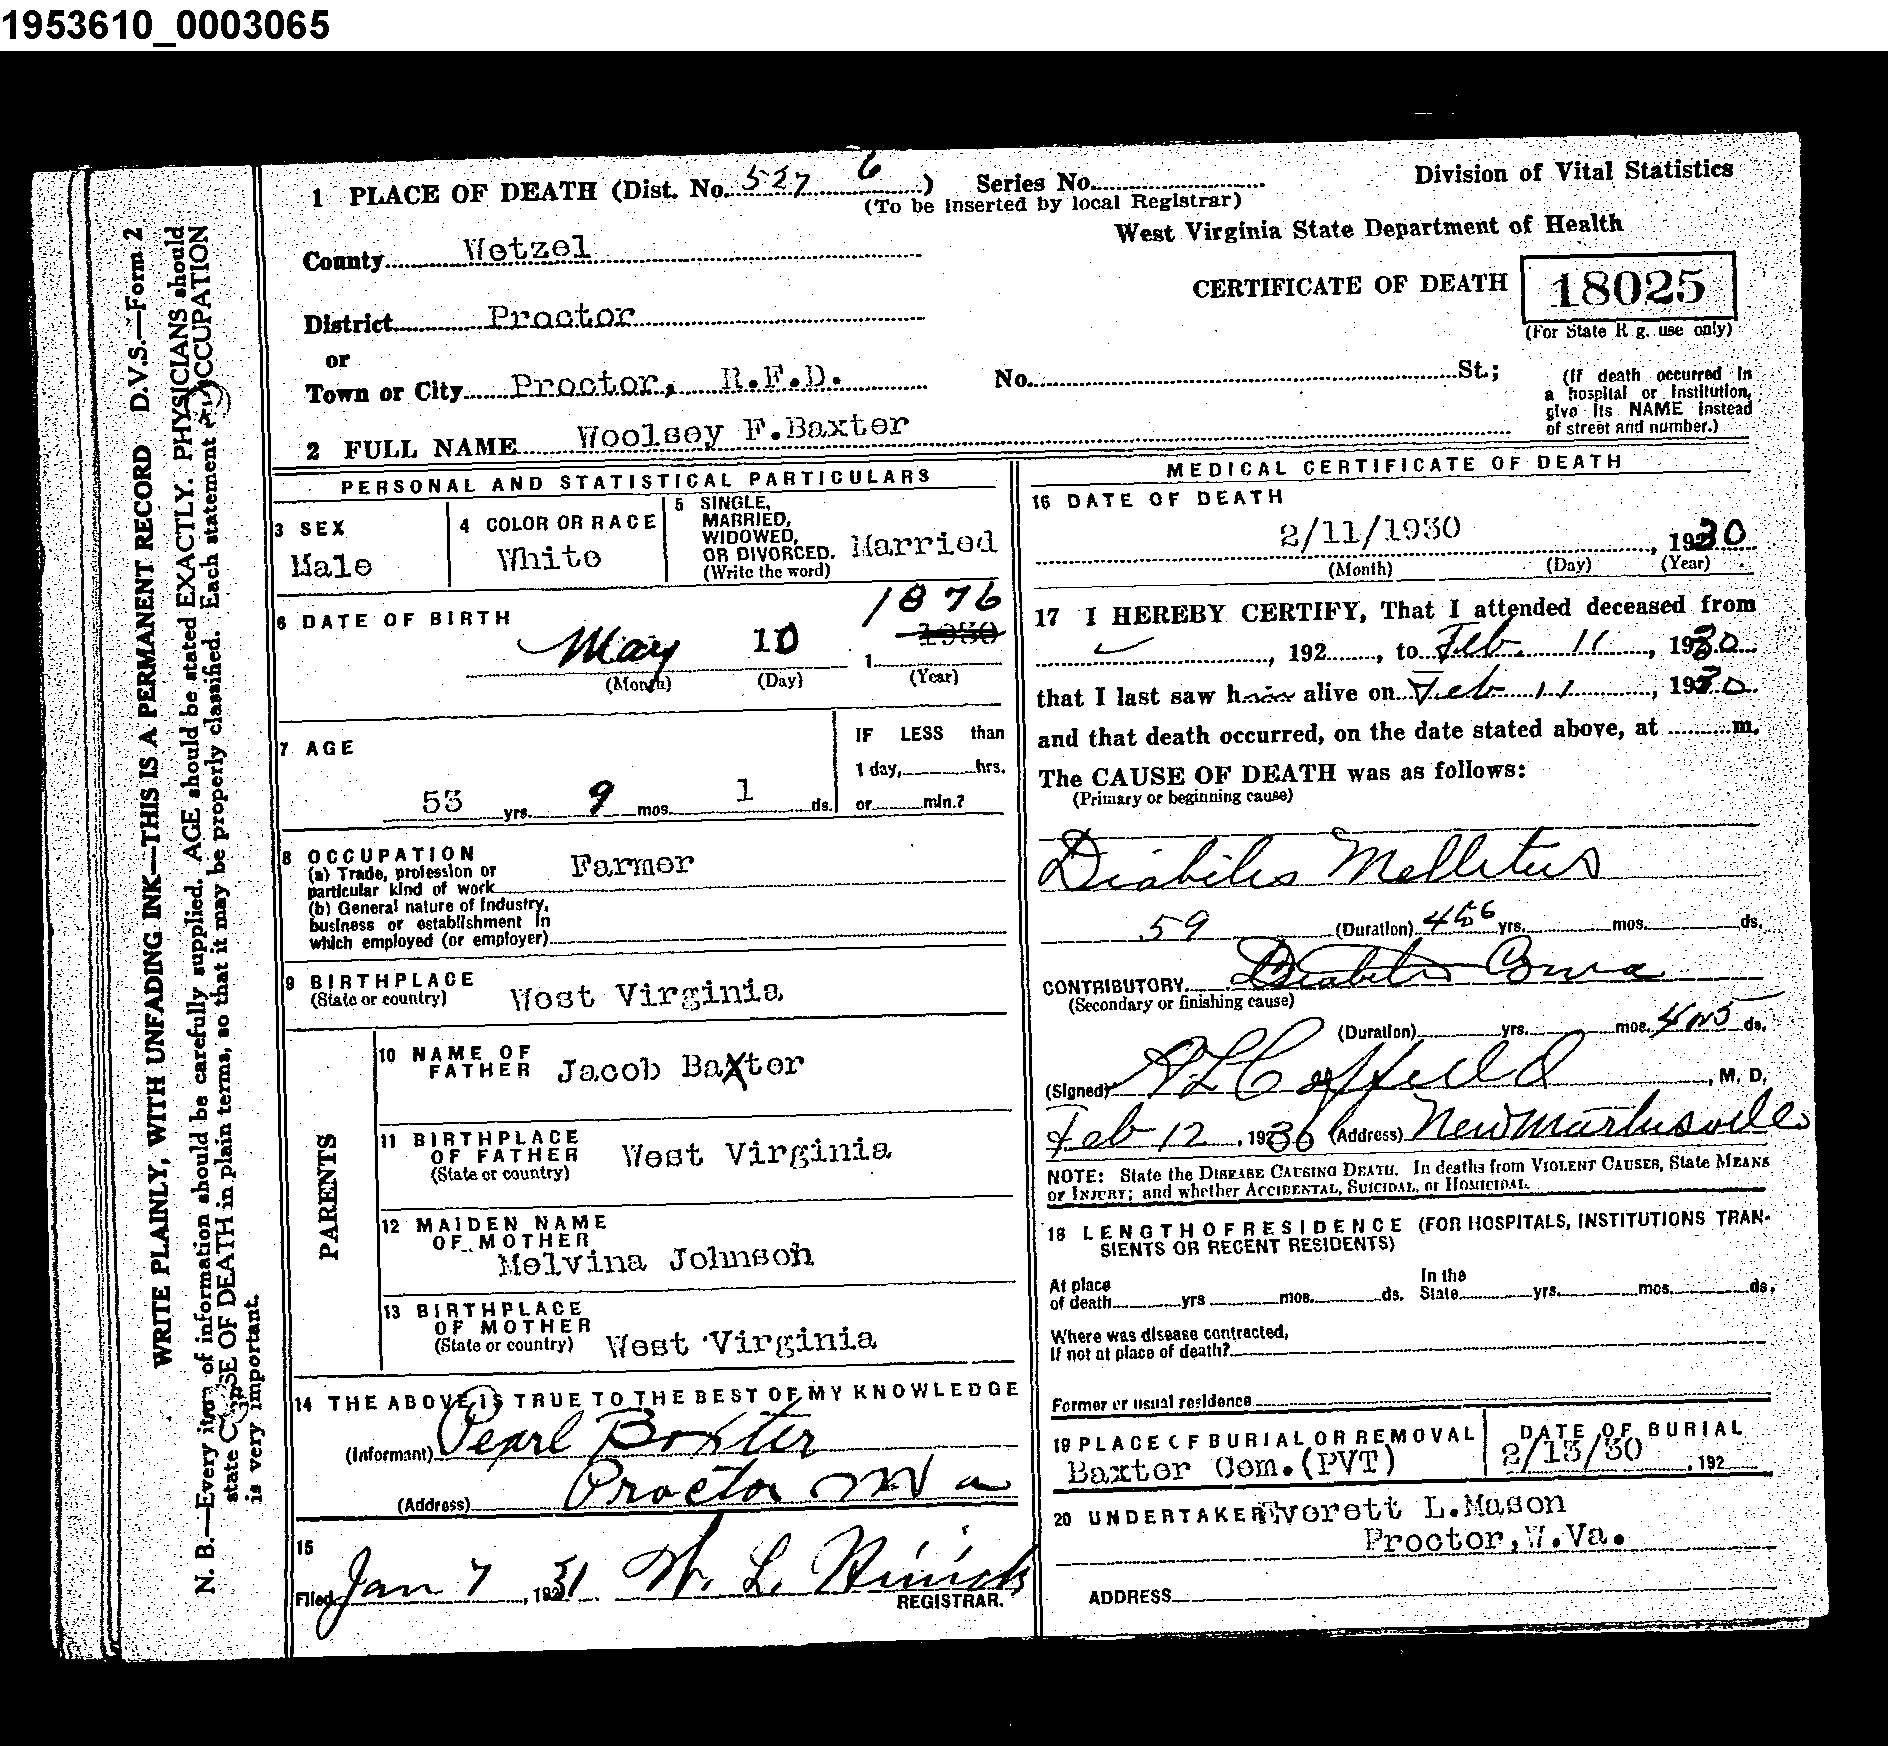 1953610_0003065
1 PLACE OF DEATH (Dist. No. 527 6 ) Series No.
(To be inserted by local Registrar)
Division of Vital Statistics
West Virginia State Department of Health
County Wetzel
CERTIFICATE OF DEATH 18025
(For State R g. use only)
District Proctor
or
Town or City Proctor, R.F.D. No. St.;
(If death occurred in
a hospital or institution,
give its NAME instead
of street and number.)
2 FULL NAME Woolsey F.Baxter
PERSONAL AND STATISTICAL PARTICULARS
3 SEX
Male
4 COLOR OR RACE
White
5 SINGLE,
MARRIED,
WIDOWED,
OR DIVORCED.
(Write the word)
Married
6 DATE OF BIRTH
1876
May 10 1 1930
(Month) (Day) (Year)
7 AGE
53 yrs. 9 mos. 1 ds.
IF LESS than
1 day, hrs.
or min.?
8 OCCUPATION
(a) Trade, profession or
particular kind of work Farmer
(b) General nature of industry,
business or establishment in
which employed (or employer)
9 BIRTHPLACE
(State or country) West Virginia
PARENTS
10 NAME OF
FATHER Jacob Baxter
11 BIRTHPLACE
OF FATHER
(State or country) West Virginia
12 MAIDEN NAME
OF MOTHER
Melvina Johnson
13 BIRTHPLACE
OF MOTHER
(State or country) West Virginia
14 THE ABOVE IS TRUE TO THE BEST OF MY KNOWLEDGE
(Informant) Pearl Baxter
(Address) Proctor W Va
15
Filed Jan 7, 1931
REGISTRAR.
MEDICAL CERTIFICATE OF DEATH
16 DATE OF DEATH
2/11/1930 , 1930
(Month) (Day) (Year)
17 I HEREBY CERTIFY, That I attended deceased from
, 192 , to Feb. 11 , 1930
that I last saw him alive on Feb 11 , 1930.
and that death occurred, on the date stated above, at m.
The CAUSE OF DEATH was as follows:
(Primary or beginning cause)
Diabites Mellitus
59 (Duration) yrs. mos. ds.
CONTRIBUTORY Diabetes Coma
(Secondary or finishing cause)
(Duration) yrs. mos. 4 or 5 ds.
(Signed) A L Coffield , M. D.
Feb 12 , 1930 (Address) New Martinsville
NOTE: State the DISEASE CAUSING DEATH. In deaths from VIOLENT CAUSES, State MEANS
OF INJURY; and whether ACCIDENTAL, SUICIDAL, or HOMICIDAL.
18 LENGTH OF RESIDENCE (FOR HOSPITALS, INSTITUTIONS TRAN-
SIENTS OR RECENT RESIDENTS)
At place
of death yrs mos. ds. In the
State yrs. mos. ds.
Where was disease contracted,
If not at place of death?
Former or usual residence
19 PLACE OF BURIAL OR REMOVAL
Baxter Cem.(PVT)
DATE OF BURIAL
2/13/30 , 192
20 UNDERTAKER Everett L.Mason
Proctor,W.Va.
ADDRESS
D.V.S.—Form 2
WRITE PLAINLY, WITH UNFADING INK—THIS IS A PERMANENT RECORD
N. B.—Every item of information should be carefully supplied. AGE should be stated EXACTLY. PHYSICIANS should
state CAUSE OF DEATH in plain terms, so that it may be properly classified. Each statement OCCUPATION
is very important.